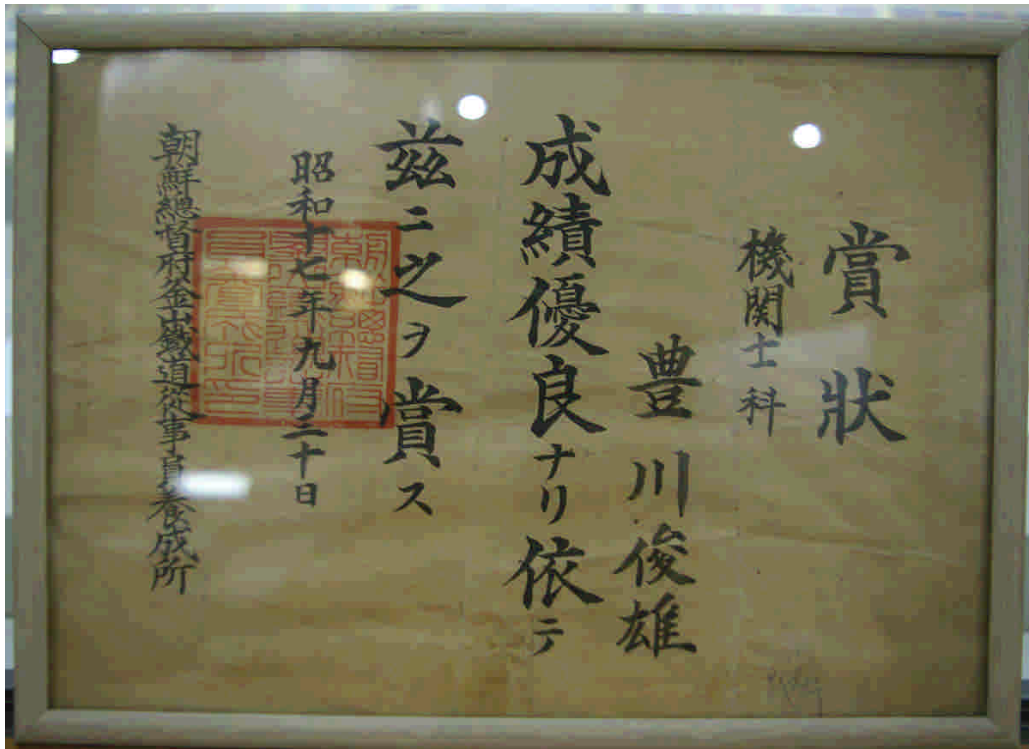 賞狀
機関士科
豊川俊雄
成績優良ナリ依テ
茲ニ之ヲ賞ス
昭和十七年九月二十日
朝鮮總督府釜山鐵道從事員養成所